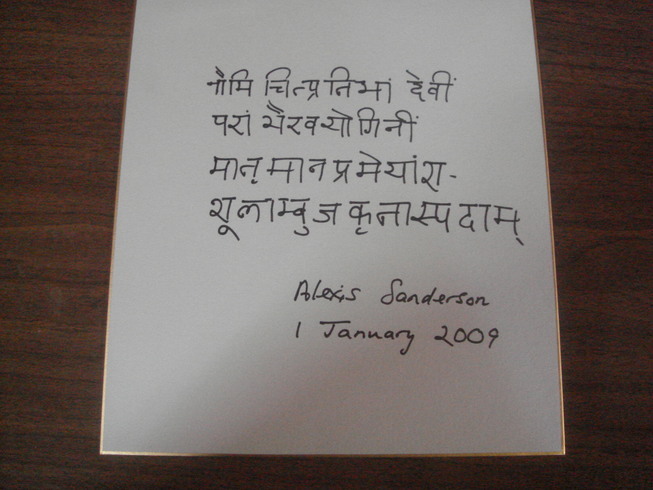 नौमि चित्प्रतिभां देवीं
परां भैरवयोगिनीं
मातृमानप्रमेयांश-
शूलाम्बुजकृतास्पदाम्
Alexis Sanderson
1 January 2009